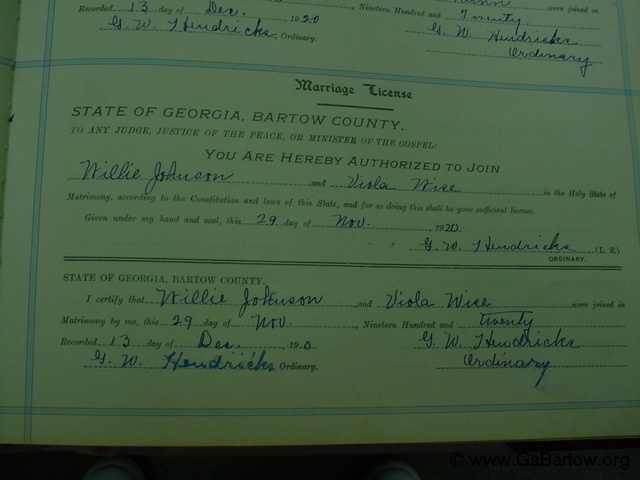 were joined in
Recorded 13 day of Dec. 1920, Nineteen Hundred and Twenty
G. W. Hendricks, Ordinary. G. W. Hendricks
Ordinary
Marriage License
STATE OF GEORGIA, BARTOW COUNTY.
TO ANY JUDGE, JUSTICE OF THE PEACE, OR MINISTER OF THE GOSPEL:
YOU ARE HEREBY AUTHORIZED TO JOIN
Willie Johnson and Viola Wise in the Holy State of
Matrimony, according to the Constitution and laws of this State, and for so doing this shall be your sufficient license.
Given under my hand and seal, this 29 day of Nov. 1920
G. W. Hendricks (L. S.)
ORDINARY.
STATE OF GEORGIA, BARTOW COUNTY.
I certify that Willie Johnson and Viola Wise were joined in
Matrimony by me, this 29 day of Nov, Nineteen Hundred and Twenty
Recorded 13 day of Dec. G. W. Hendricks
G. W. Hendricks, Ordinary. Ordinary
© www.GaBartow.org